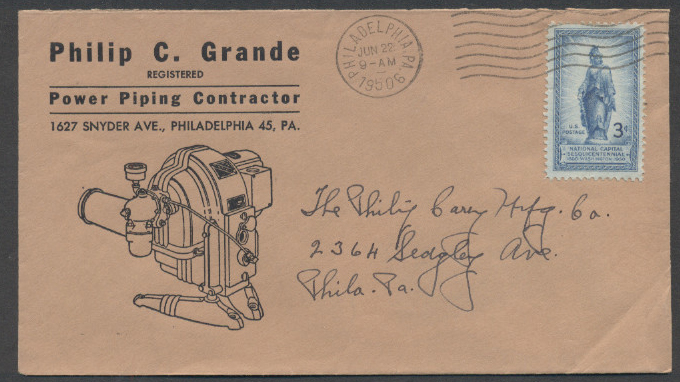 Philip C. Grande
REGISTERED
Power Piping Contractor
1627 SNYDER AVE., PHILADELPHIA 45, PA.
PHILADELPHIA, PA.
JUN 22
9-AM
1950
U.S. POSTAGE
3¢
NATIONAL CAPITAL
SESQUICENTENNIAL
1800 WASHINGTON 1950
The Philip Carey Mfg. Co.
2364 Sedgley Ave.
Phila. Pa.